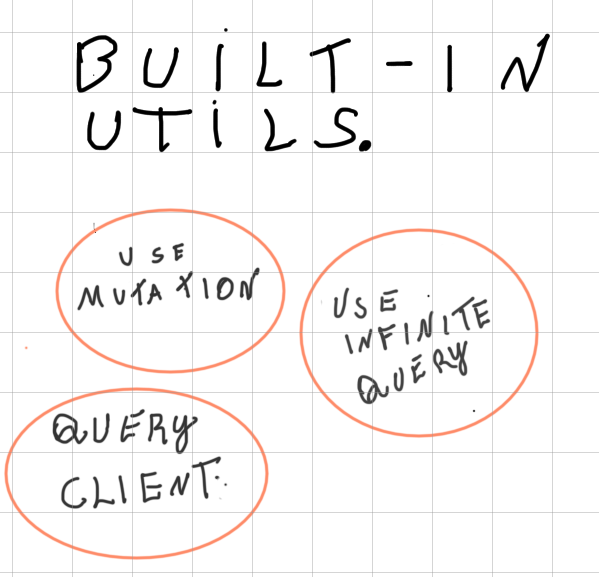 BUiLT-IN
UTiLS.
USE
MUTATION
USE
INFINITE
QUERY
QUERY
CLIENT.